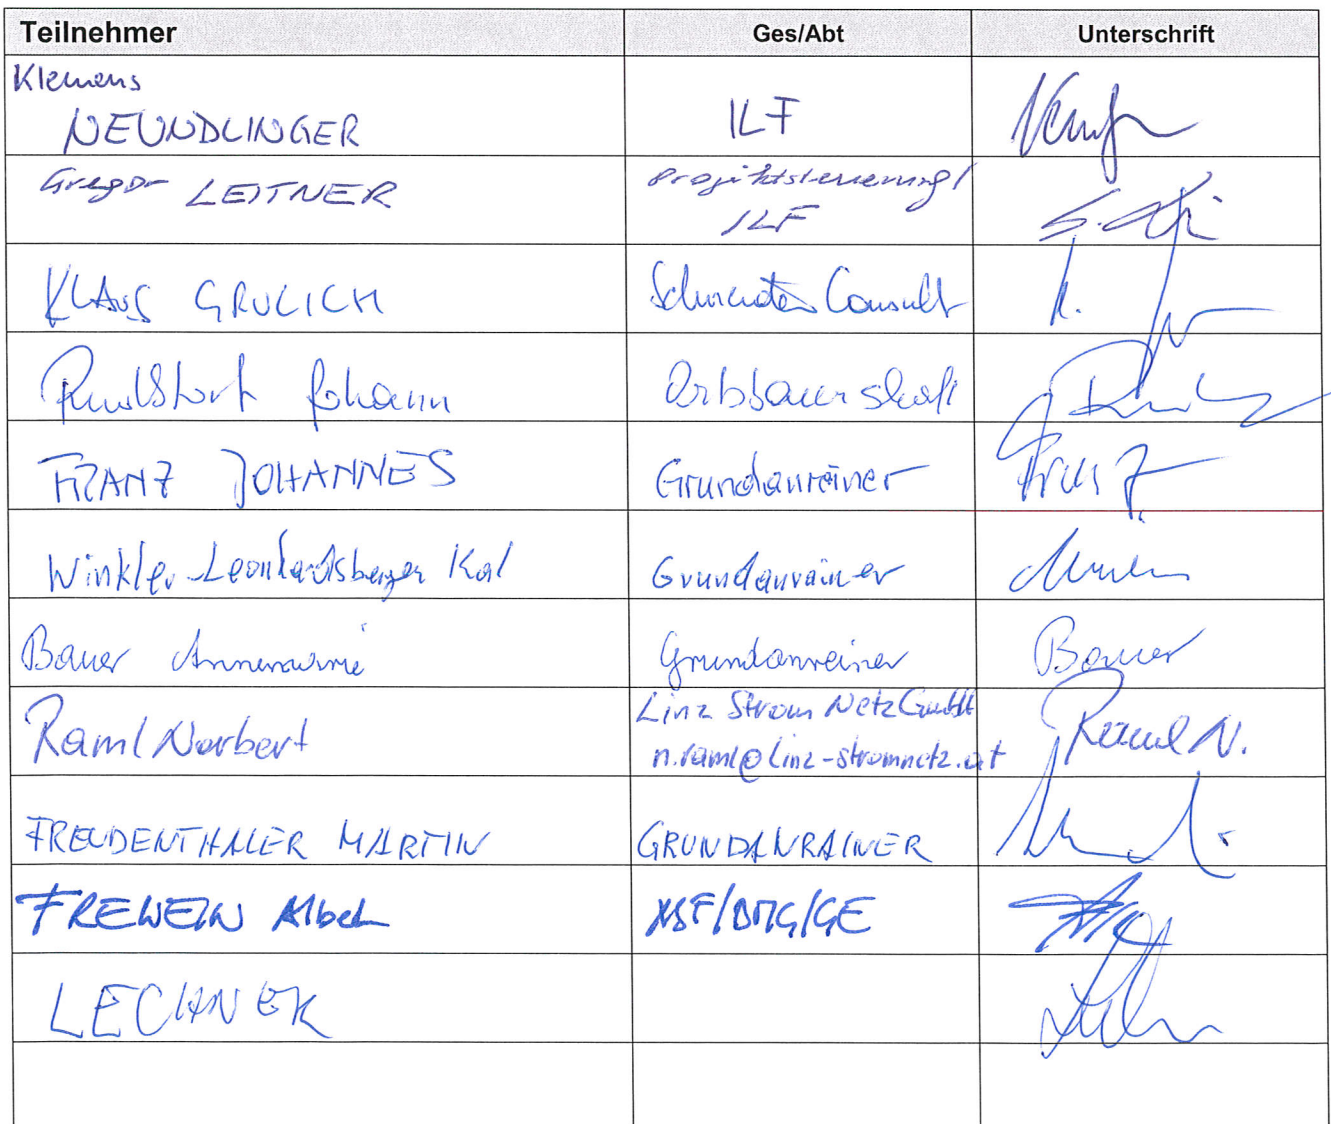 Teilnehmer Ges/Abt Unterschrift
Klemens
NEUNDLINGER ILF
Gregor LEITNER Projektsteuerung/
ILF
KLAUS GRULICH Consult
Johann
FRANZ JOHANNES Grundanreiner Franz J.
Winkler-Leonhardsberger Karl Grundanrainer
Bauer Annemarie Grundanreiner Bauer
Raml Norbert Linz Strom Netz GmbH Raml N.
n.raml@linz-stromnetz.at
FREUDENTHALER MARTIN GRUNDANRAINER
FREWEIN Albert
LECHNER